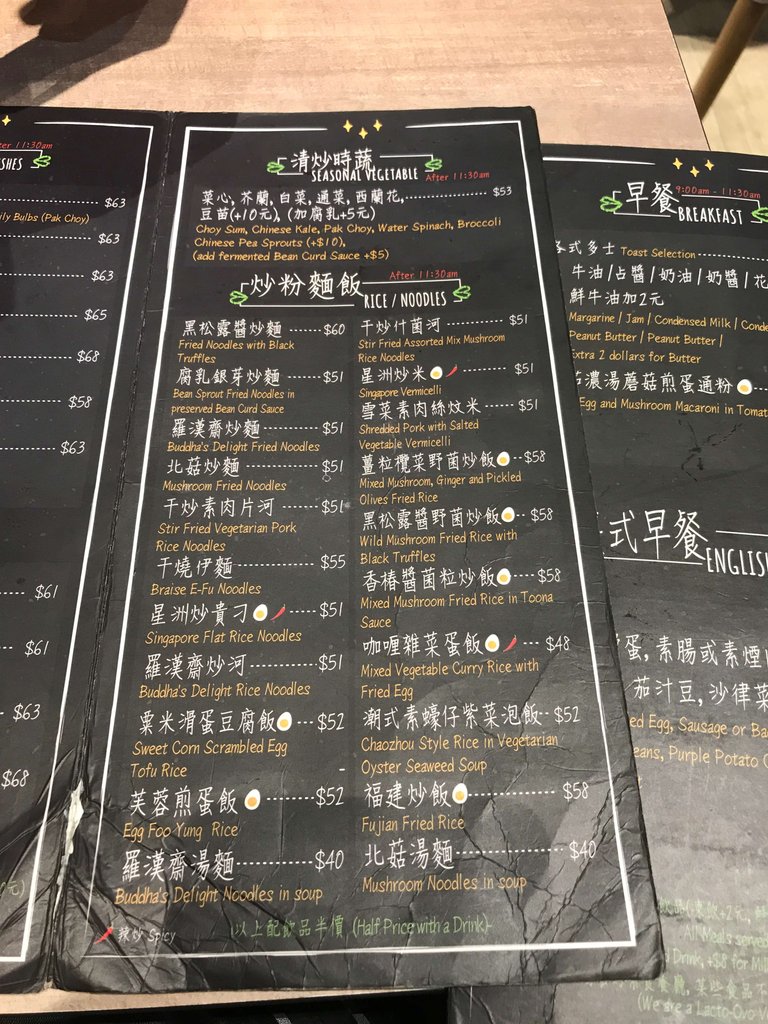 SHES
$63
ily Bulbs (Pak Choy)
$63
$63
$65
$68
$58
$63
$61
$61
$63
$68
清炒時蔬
SEASONAL VEGETABLE After 11:30am
菜心, 芥蘭, 白菜, 通菜, 西蘭花, $53
豆苗(+10元), (加腐乳+5元)
Choy Sum, Chinese Kale, Pak Choy, Water Spinach, Broccoli
Chinese Pea Sprouts (+$10),
(add fermented Bean Curd Sauce +$5)
炒粉麵飯 RICE / NOODLES After 11:30am
黑松露醬炒麵 $60
Fried Noodles with Black
Truffles
腐乳銀芽炒麵 $51
Bean Sprout Fried Noodles in
preserved Bean Curd Sauce
羅漢齋炒麵 $51
Buddha's Delight Fried Noodles
北菇炒麵 $51
Mushroom Fried Noodles
干炒素肉片河 $51
Stir Fried Vegetarian Pork
Rice Noodles
干燒伊麵 $55
Braise E-Fu Noodles
星洲炒貴刁 $51
Singapore Flat Rice Noodles
羅漢齋炒河 $51
Buddha's Delight Rice Noodles
粟米滑蛋豆腐飯 $52
Sweet Corn Scrambled Egg
Tofu Rice
芙蓉煎蛋飯 $52
Egg Foo Yung Rice
羅漢齋湯麵 $40
Buddha's Delight Noodles in soup
干炒什菌河 $51
Stir Fried Assorted Mix Mushroom
Rice Noodles
星洲炒米 $51
Singapore Vermicelli
雪菜素肉絲炆米 $51
Shredded Pork with Salted
Vegetable Vermicelli
薑粒欖菜野菌炒飯 $58
Mixed Mushroom, Ginger and Pickled
Olives Fried Rice
黑松露醬野菌炒飯 $58
Wild Mushroom Fried Rice with
Black Truffles
香椿醬菌粒炒飯 $58
Mixed Mushroom Fried Rice in Toona
Sauce
咖喱雜菜蛋飯 $48
Mixed Vegetable Curry Rice with
Fried Egg
潮式素蠔仔紫菜泡飯 $52
Chaozhou Style Rice in Vegetarian
Oyster Seaweed Soup
福建炒飯 $58
Fujian Fried Rice
北菇湯麵 $40
Mushroom Noodles in soup
辣炒 Spicy
以上配飲品半價 (Half Price with a Drink)
早餐 BREAKFAST 9:00am - 11:30am
各式多士 Toast Selection
牛油 / 占醬 / 奶油 / 奶醬 / 花
鮮牛油加2元
Margarine / Jam / Condensed Milk / Conde
Peanut Butter / Peanut Butter /
Extra 2 dollars for Butter
茄濃湯蘑菇煎蛋通粉
Egg and Mushroom Macaroni in Tomat
式早餐 ENGLIS
蛋, 素腸或素煙
茄汁豆, 沙律菜
ed Egg, Sausage or Ba
eans, Purple Potato
All Meals served
Drink, +$8 for Mil
(We are a Lacto-Ovo V